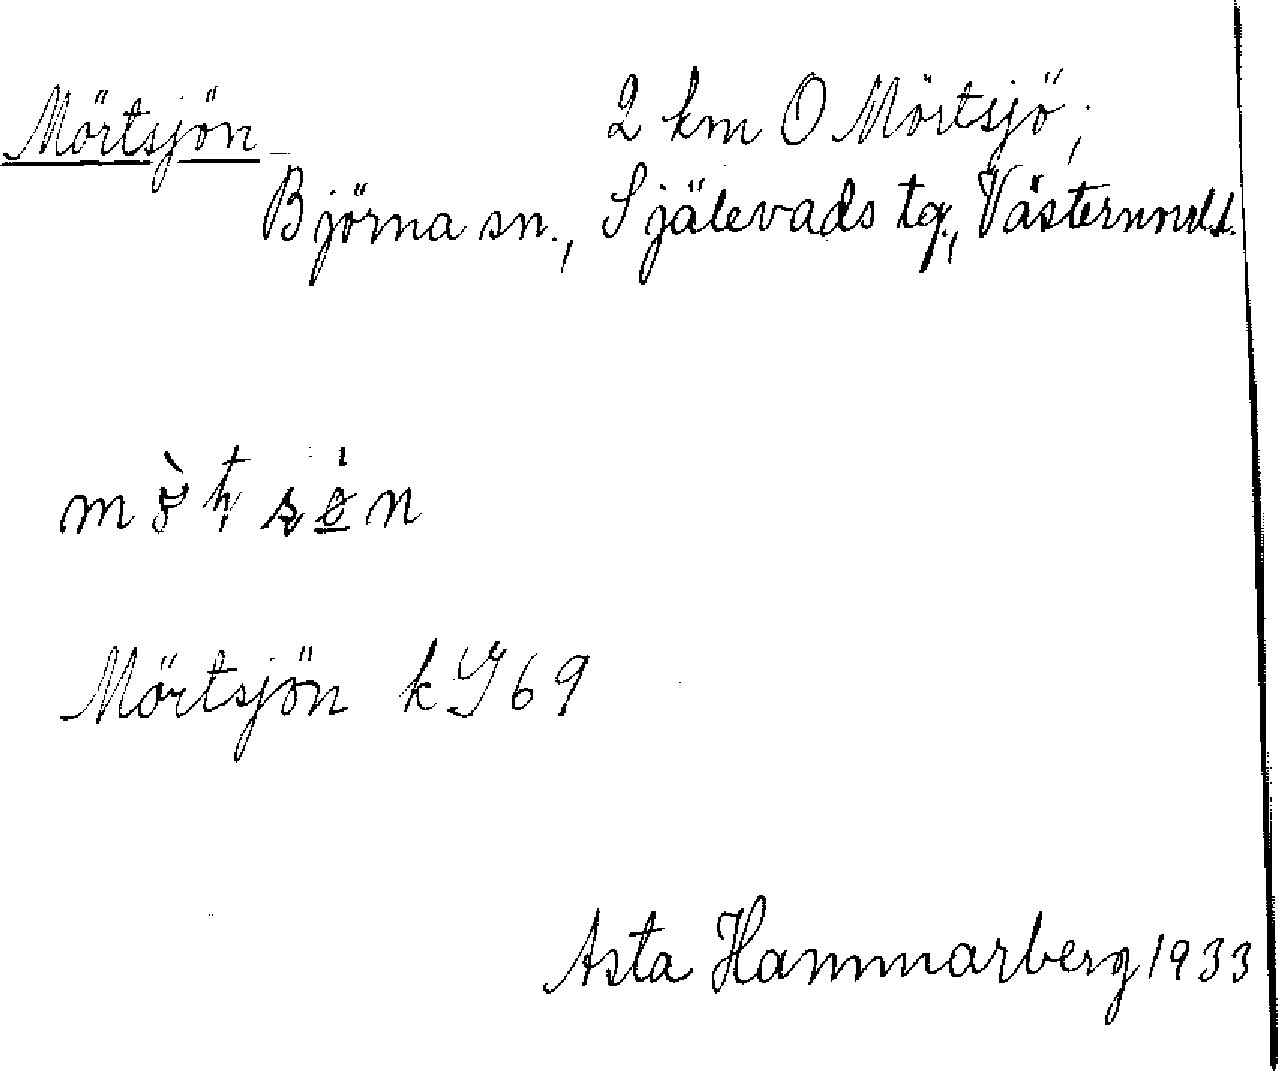 Mörtsjön 2 km O Mörtsjö,
Björna sn., Själevads tg., Västernndl.
Mörtsjön k Y 69
Asta Hammarberg 1933